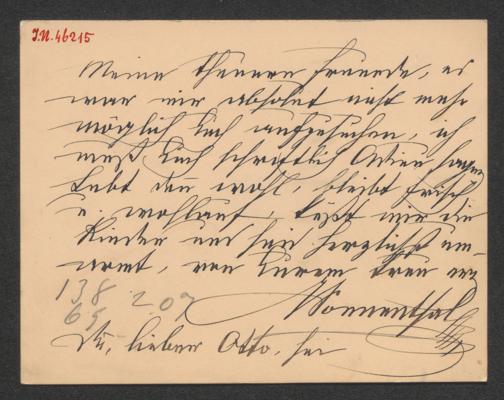 J.N. 46215
Meine theuern Freunde, es
war mir absolut nicht mehr
möglich Euch aufzusuchen, ich
muß Euch schriftlich Adieu sagen
Lebt denn wohl, bleibt frisch
u. wohlauf, küßt mir die
Kinder und seid herzlichst um-
armt, von Eurem treu erg
Sonnenthal
138 2.09
65
Du, lieber Otto, sei